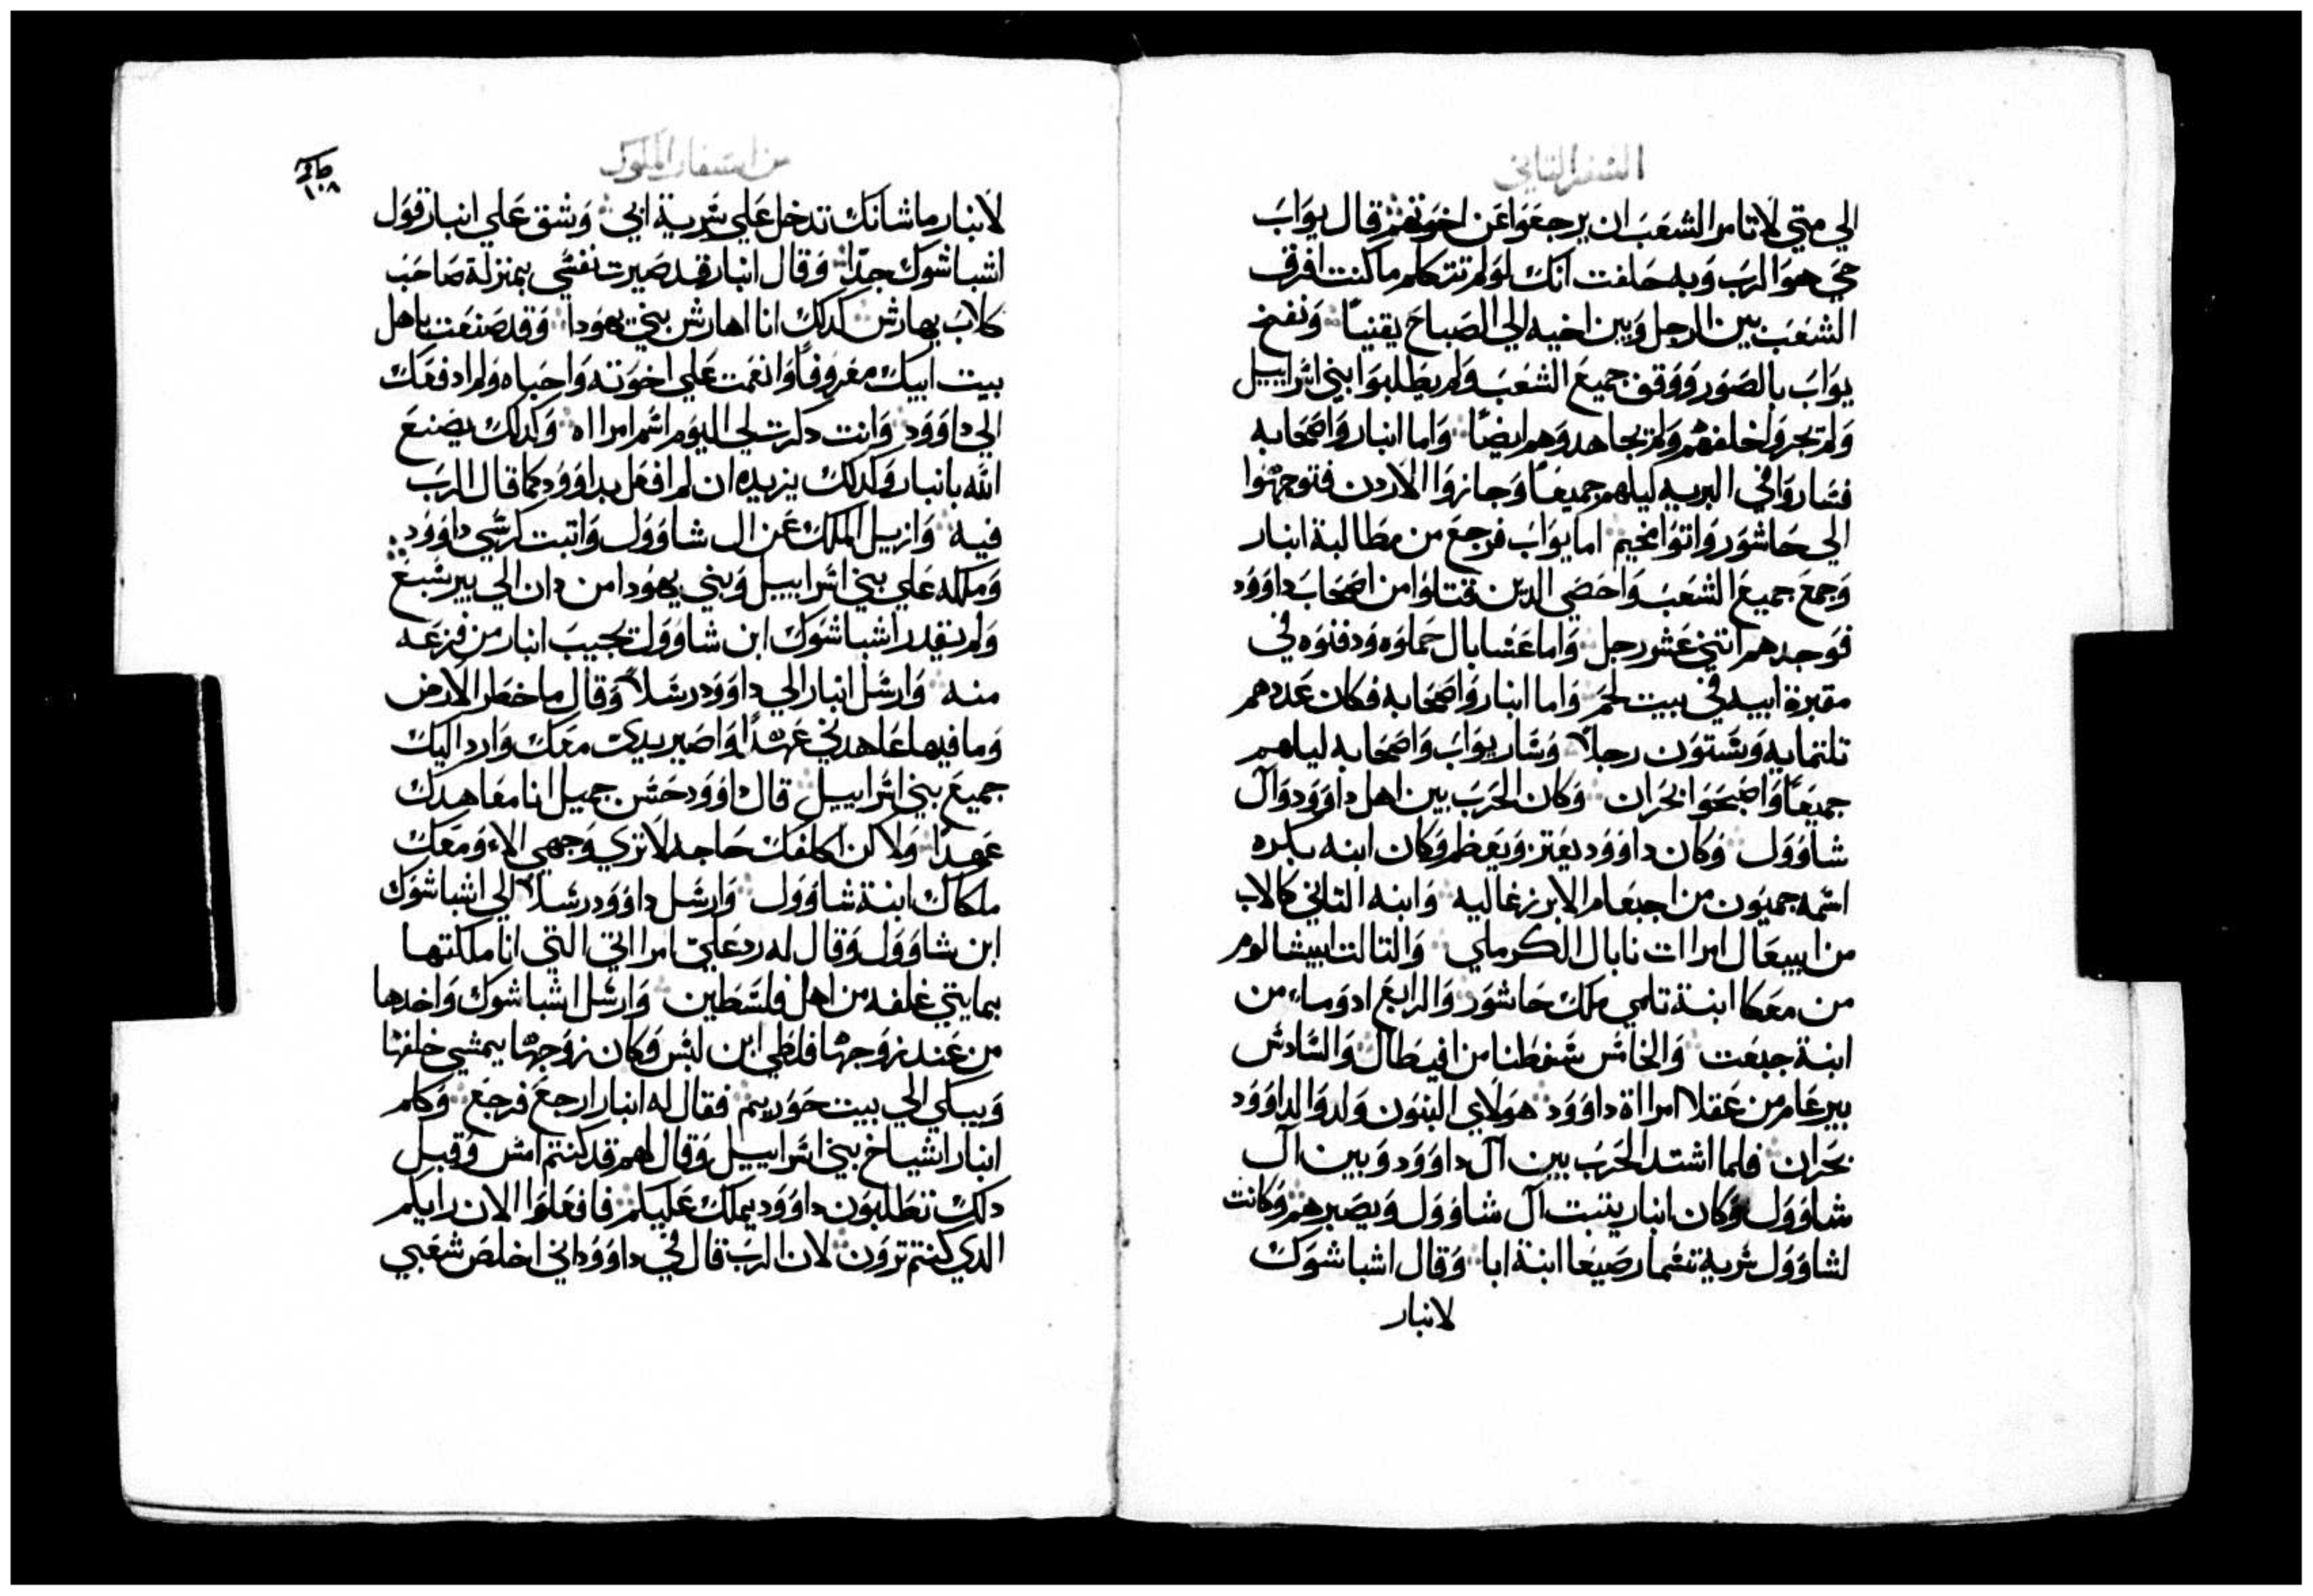 السفر الثاني
الي متي لا تامر الشعب ان يرجعوا عن اخوتهم قال يواب
حي هو الرب وبه حلفت انك لو لم تتكلم ما كنت افرق
الشعب بين الرجل وبين اخيه الي الصباح يقنيًا ونفخ
يواب بالصور ووقف جميع الشعب ولم يطلبوا بني اسراييل
ولم تجروا خلفهم ولم يجاهدوهم ايضًا واما انبار واصحابه
فساروا في البريه ليلهم جميعًا وجازوا الاردن فتوجهوا
الي حاشور واتوا مخيم اما يواب فرجع من مطالبة انبار
وجمع جميع الشعب واحصي الدين قتلوا من اصحاب داوود
فوجدهم اتني عشر رجل واما عسابال حملوه ودفنوه في
مقبرة ابيه في بيت لحم واما انبار واصحابه فكان عددهم
تلتمايه وستون رجلاً وسار يواب واصحابه ليلهم
جميعًا واصبحوا بحران وكان الحرب بين اهل داوود وآل
شاوول وكان داوود يعتز ويعظم وكان ابنه بكره
اسمه حميون من اجيعام الابرزغاليه وابنه التاني كالاب
من ابيعال امراات نابال الكرملي والتالت ابيشالوم
من معكا ابنة تلمي ملك حاشور والرابع ادوما من
ابنة جبعت والخامس سفطنا من افيطال والسادس
بيرعام من عقلا امراة داوود هولاي البنون ولدوا لداوود
بحران فلما اشتد الحرب بين آل داوود وبين آل
شاوول وكان انبار يتبت آل شاوول ويصبرهم وكانت
لشاوول سرية تسما رصيعا ابنة ابا وقال اشباشوك
لانبار
من اسفار الملوك
١٠٨
لانبار ما شانك تدخل علي سرية ابي وشق علي انبار قول
اشباشوك جدًا وقال انبار قد صيرت نفسي بمنزلة صاحب
كلاب يهارش كدلك انا اهارش بني يهودا وقد صنعت باهل
بيت ابيك معروفًا وانعمت علي اخوته واحباه ولم ادفعك
الي داوود وانت دكرت لي اليوم اسم امرااه وكدلك يصنع
الله بانبار وكدلك يزيده ان لم افعل بداوود كما قال الرب
فيه وازيل الملك عن ال شاوول واتبت كرسي داوود
ومملكه علي بني اسراييل وبني يهودا من دان الي بيرسبع
ولم يقدر اشباشوك ابن شاوول تجيب انبار من فزعه
منه وارسل انبار الي داوود رسلاً وقال ما خطر الارض
وما فيها عاهدني عهدًا واصير يدي معك وارد اليك
جميع بني اسراييل قال داوود حسن جميل انا معاهدك
عهدًا ولاكن اكلفك حاجه لا تري وجهي الا ومعك
ملكال ابنة شاوول وارسل داوود رسلاً الي اشباشوك
ابن شاوول وقال له رد علي امرااتي التي انا ملكتها
بمايتي غلفه من اهل فلسطين وارسل اشباشوك واخدها
من عند زوجها فلطي ابن لبس وكان زوجها يمشي خلفها
ويبكي الي بيت حوريم فقال له انبار ارجع فرجع وكلم
انبار اشياخ بني اسراييل وقال لهم قد كنتم امس وقبل
دلك تطلبون داوود يملك عليكم فافعلوا الان رايكم
الدي كنتم ترون لان الرب قال في داوود اني اخلص شعبي